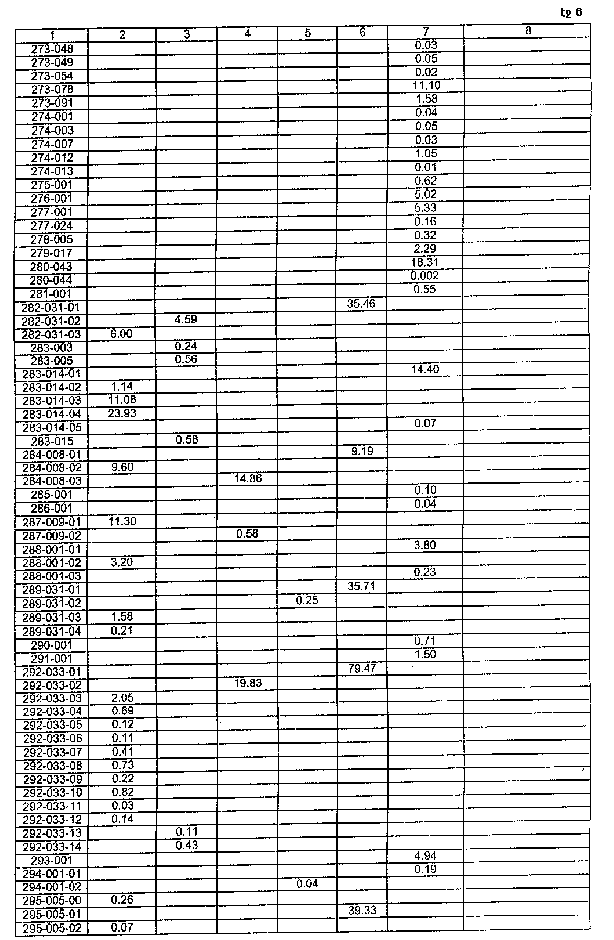 էջ 6
1 2 3 4 5 6 7 8
273-048 0.03
273-049 0.05
273-054 0.02
273-078 11.10
273-091 1.58
274-001 0.04
274-003 0.05
274-007 0.03
274-012 1.05
274-013 0.01
275-001 0.62
276-001 5.02
277-001 5.33
277-024 0.16
278-005 0.32
279-017 2.29
280-043 18.31
280-044 0.002
281-001 0.55
282-031-01 35.46
282-031-02 4.59
282-031-03 6.00
283-003 0.24
283-005 0.56
283-014-01 14.40
283-014-02 1.14
283-014-03 11.08
283-014-04 23.93
283-014-05 0.07
283-015 0.58
284-008-01 9.19
284-008-02 9.60
284-008-03 14.86
285-001 0.10
286-001 0.04
287-009-01 11.30
287-009-02 0.58
288-001-01 3.80
288-001-02 3.20
288-001-03 0.23
289-031-01 35.71
289-031-02 0.25
289-031-03 1.58
289-031-04 0.21
290-001 0.71
291-001 1.50
292-033-01 79.47
292-033-02 19.83
292-033-03 2.05
292-033-04 0.69
292-033-05 0.12
292-033-06 0.11
292-033-07 0.41
292-033-08 0.73
292-033-09 0.22
292-033-10 0.82
292-033-11 0.03
292-033-12 0.14
292-033-13 0.11
292-033-14 0.43
293-001 4.94
294-001-01 0.19
294-001-02 0.04
295-005-00 0.26
295-005-01 39.33
295-005-02 0.07